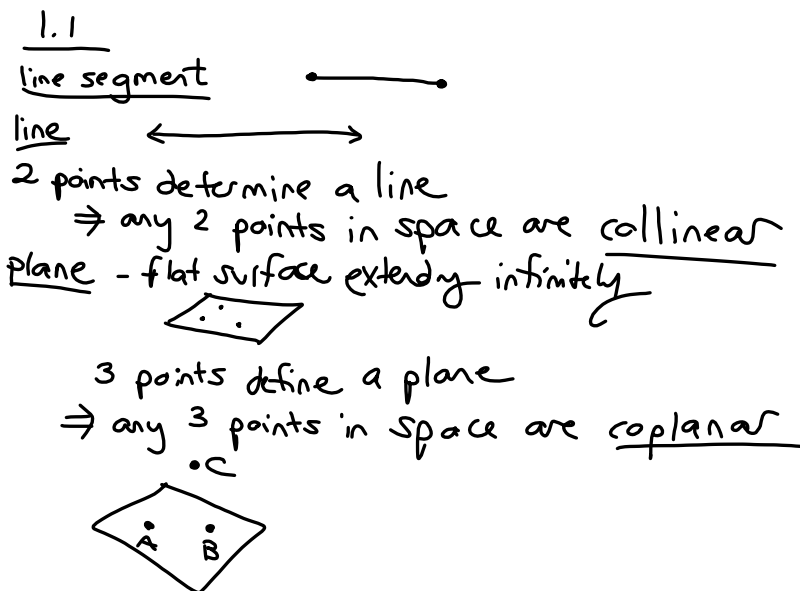 1.1
line segment
line
2 points determine a line
⇒ any 2 points in space are collinear
plane - flat surface extendy infinitely
3 points define a plane
⇒ any 3 points in space are coplanar
C
A B